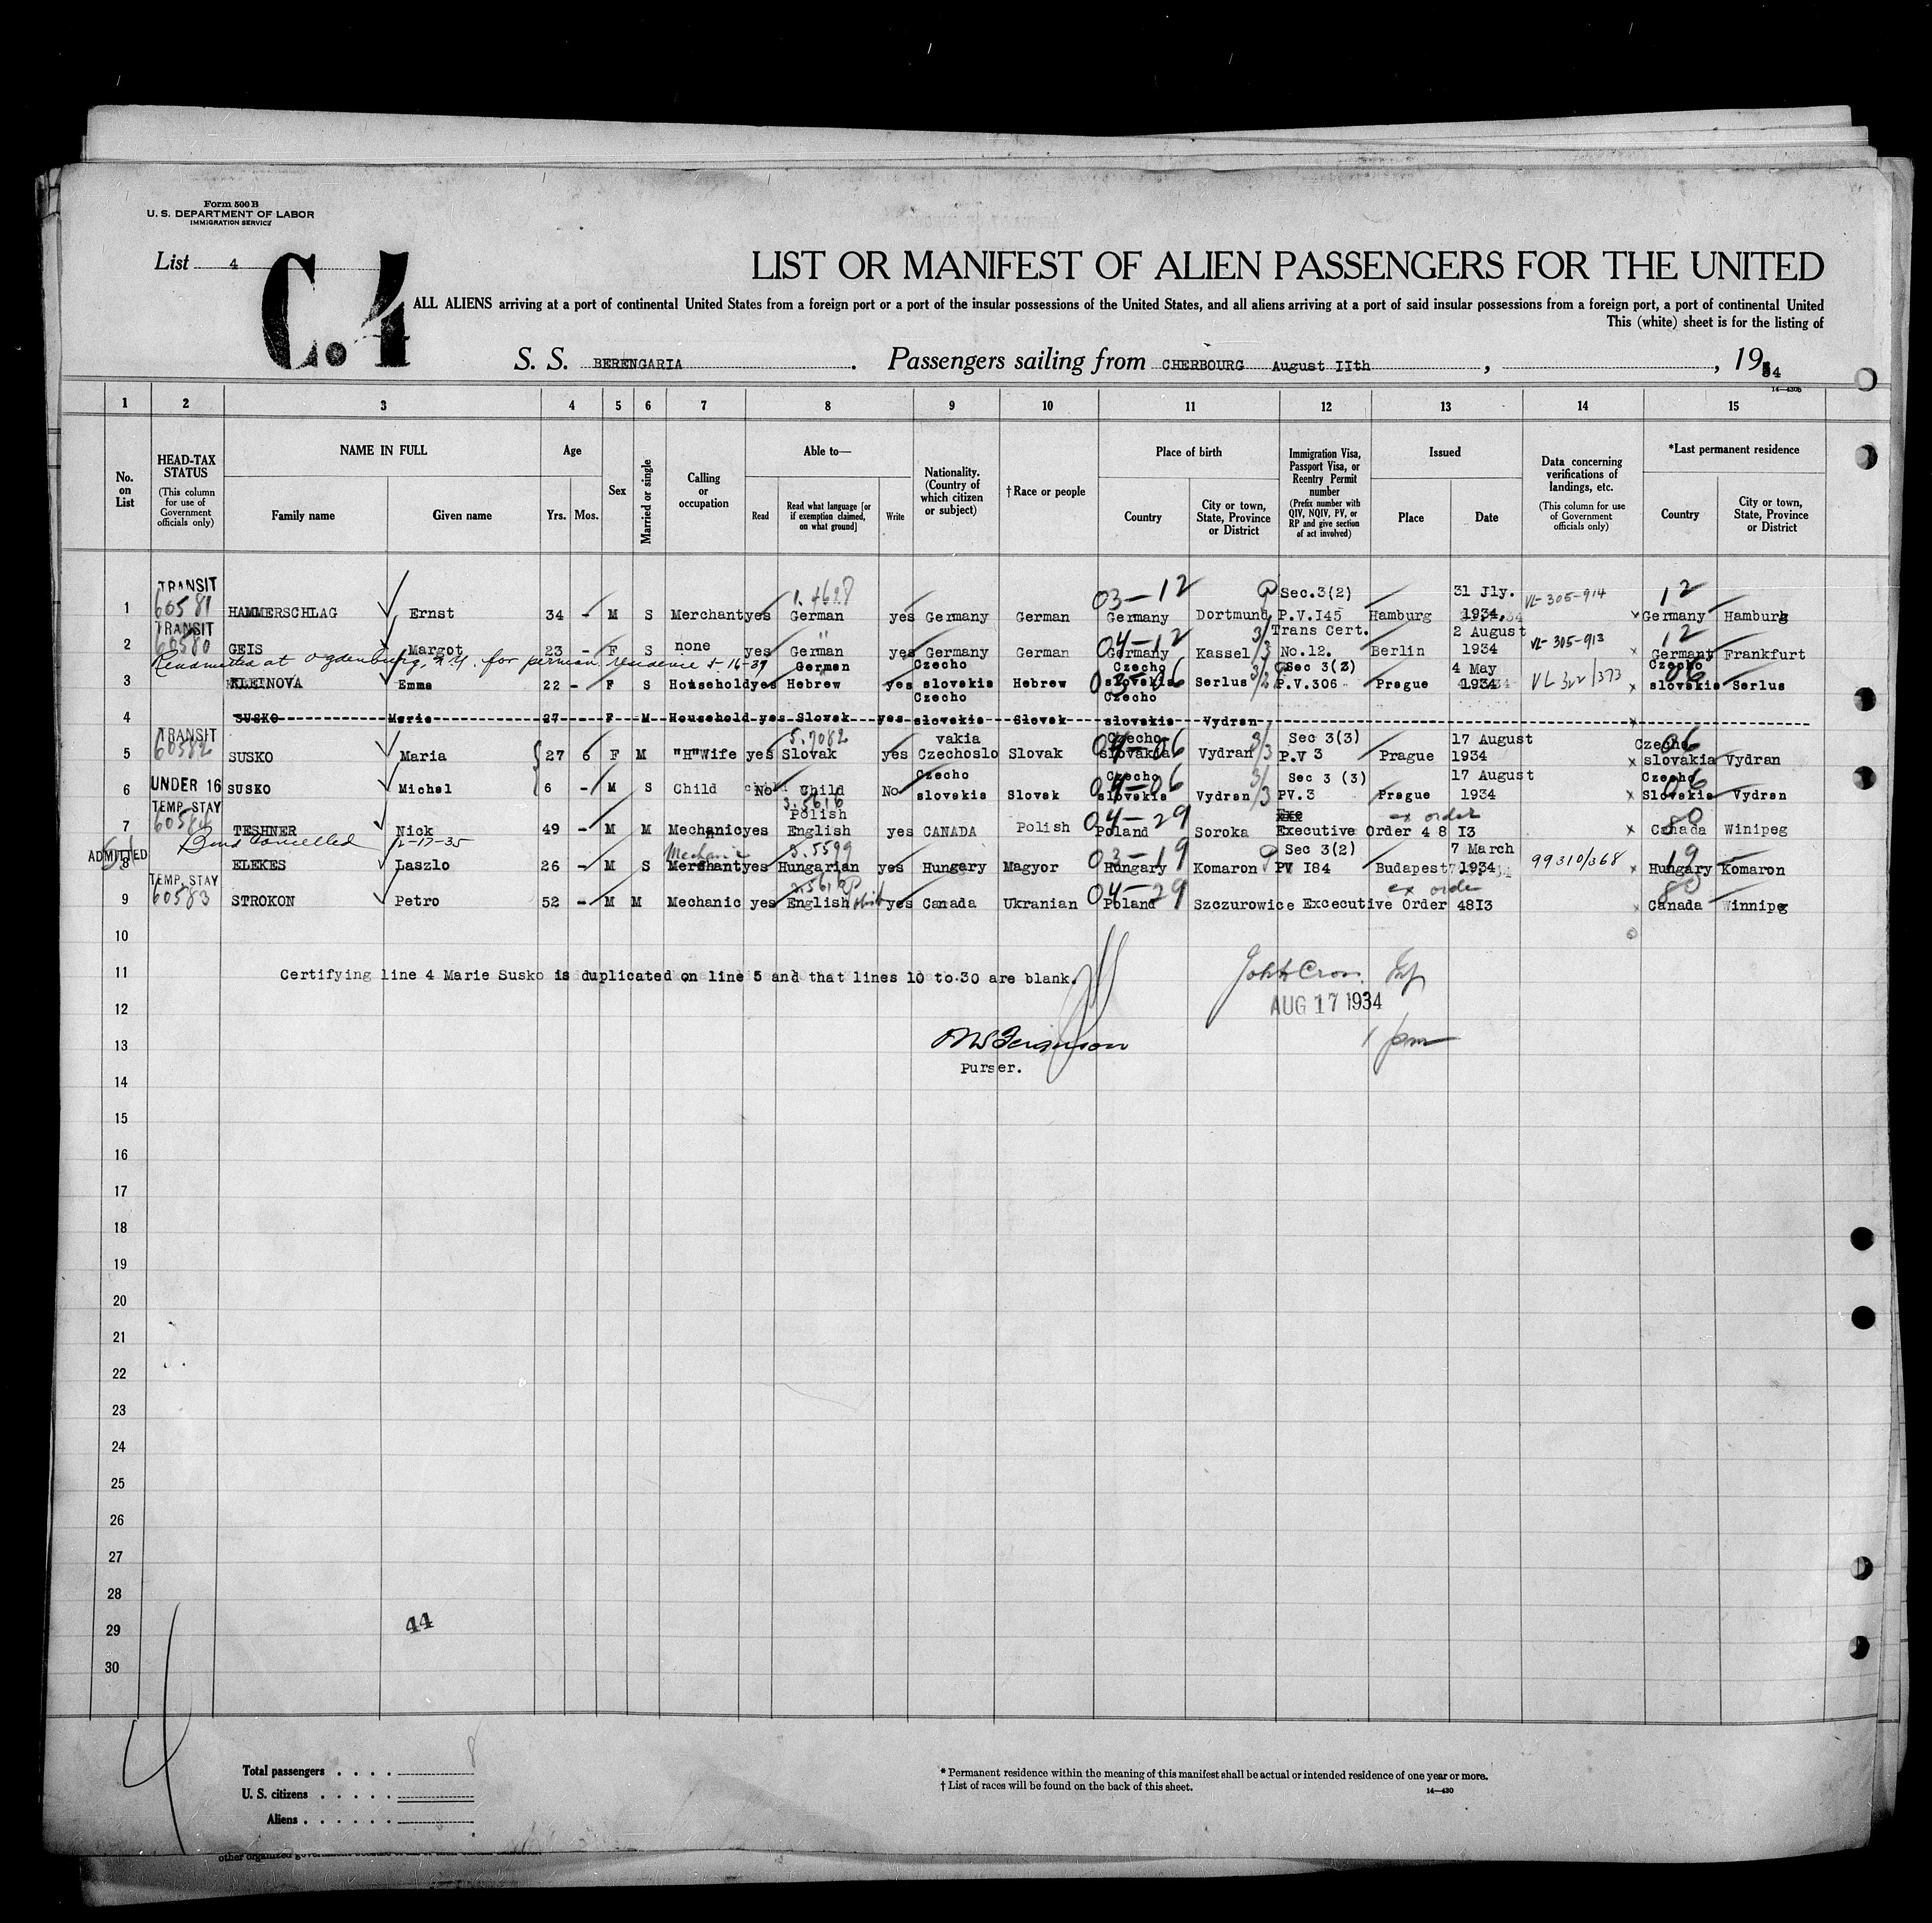 Form 500 B
U. S. DEPARTMENT OF LABOR
IMMIGRATION SERVICE
List 4
C.4
LIST OR MANIFEST OF ALIEN PASSENGERS FOR THE UNITED
ALL ALIENS arriving at a port of continental United States from a foreign port or a port of the insular possessions of the United States, and all aliens arriving at a port of said insular possessions from a foreign port, a port of continental United
This (white) sheet is for the listing of
S. S. BERENGARIA . Passengers sailing from CHERBOURG August IIth , , 1934
14—430b
1 2 3 4 5 6 7 8 9 10 11 12 13 14 15
No. on List
HEAD-TAX STATUS (This column for use of Government officials only)
NAME IN FULL
Family name Given name
Age
Yrs. Mos.
Sex
Married or single
Calling or occupation
Able to—
Read Read what language [or if exemption claimed, on what ground] Write
Nationality. (Country of which citizen or subject)
† Race or people
Place of birth
Country City or town, State, Province or District
Immigration Visa, Passport Visa, or Reentry Permit number (Prefix number with QIV, NQIV, PV, or RP and give section of act involved)
Issued
Place Date
Data concerning verifications of landings, etc. (This column for use of Government officials only)
*Last permanent residence
Country City or town, State, Province or District
TRANSIT 1.4628 03-12 P Sec.3(2) 31 Jly. VL-305-914 12
1 60581 HAMMERSCHLAG Ernst 34 - M S Merchant yes German yes Germany German Germany Dortmund P.V.I45 Hamburg 1934. x Germany Hamburg
TRANSIT " 04-12 3/3 Trans Cert. 2 August VL-305-913 12
2 60580 GEIS Margot 23 - F S none yes German yes Germany German Germany Kassel No.12. Berlin 1934 Germany Frankfurt
Readmitted at Ogdenburg, N.Y. for perman. residence 5-16-39
German Czecho Czecho Sec 3(2) 4 May Czecho
3 KLEINOVA Emma 22 - F S Household yes Hebrew yes slovakia Hebrew 03-06 slovakia Serlus P.V.306 Prague 1934 VL 322/373 x 06 slovakia Serlus
Czecho Czecho
4 SUSKO Marie 27 - F M Household yes Slovak yes slovakia Slovak slovakia Vydran x
TRANSIT 5.7082 vakia Czecho 04-06 3/3 Sec 3(3) 17 August Czecho 06
5 60582 SUSKO Maria 27 6 F M "H"Wife yes Slovak yes Czechoslo Slovak slovakia Vydran P.V 3 Prague 1934 x slovakia Vydran
Czecho Czecho 04-06 3/3 Sec 3 (3) 17 August Czecho 06
6 UNDER 16 SUSKO Michal 6 - M S Child No Child No slovakia Slovak slovakia Vydran PV.3 Prague 1934 x Slovakia Vydran
TEMP. STAY 3.5616 Polish 04-29 ex order 80
7 60584 TESHNER Nick 49 - M M Mechanic yes English yes CANADA Polish Poland Soroka Executive Order 4 8 I3 x Canada Winipeg
Bond Cancelled 12-17-35
ADMITTED Mechanic 3.5599 03-19 P Sec 3(2) 7 March 19
8 ELEKES Laszlo 26 - M S Merchant yes Hungarian yes Hungary Magyor Hungary Komaron PV I84 Budapest 1934 99310/368 x Hungary Komaron
TEMP. STAY 3.5616 04-29 ex order 80
9 60583 STROKON Petro 52 - M M Mechanic yes English Polish yes Canada Ukranian Poland Szczurowice Excecutive Order 48I3 x Canada Winnipeg
10
11 Certifying line 4 Marie Susko is duplicated on line 5 and that lines 10 to 30 are blank.
John Cross Insp
12 AUG 17 1934
13 Ferguson 1 pm
Purser.
14
15
16
17
18
19
20
21
22
23
24
25
26
27
28
29 44
30
4
Total passengers . . . . 8
U. S. citizens . . . . .
Aliens . . . . . .
* Permanent residence within the meaning of this manifest shall be actual or intended residence of one year or more.
† List of races will be found on the back of this sheet.
14—430